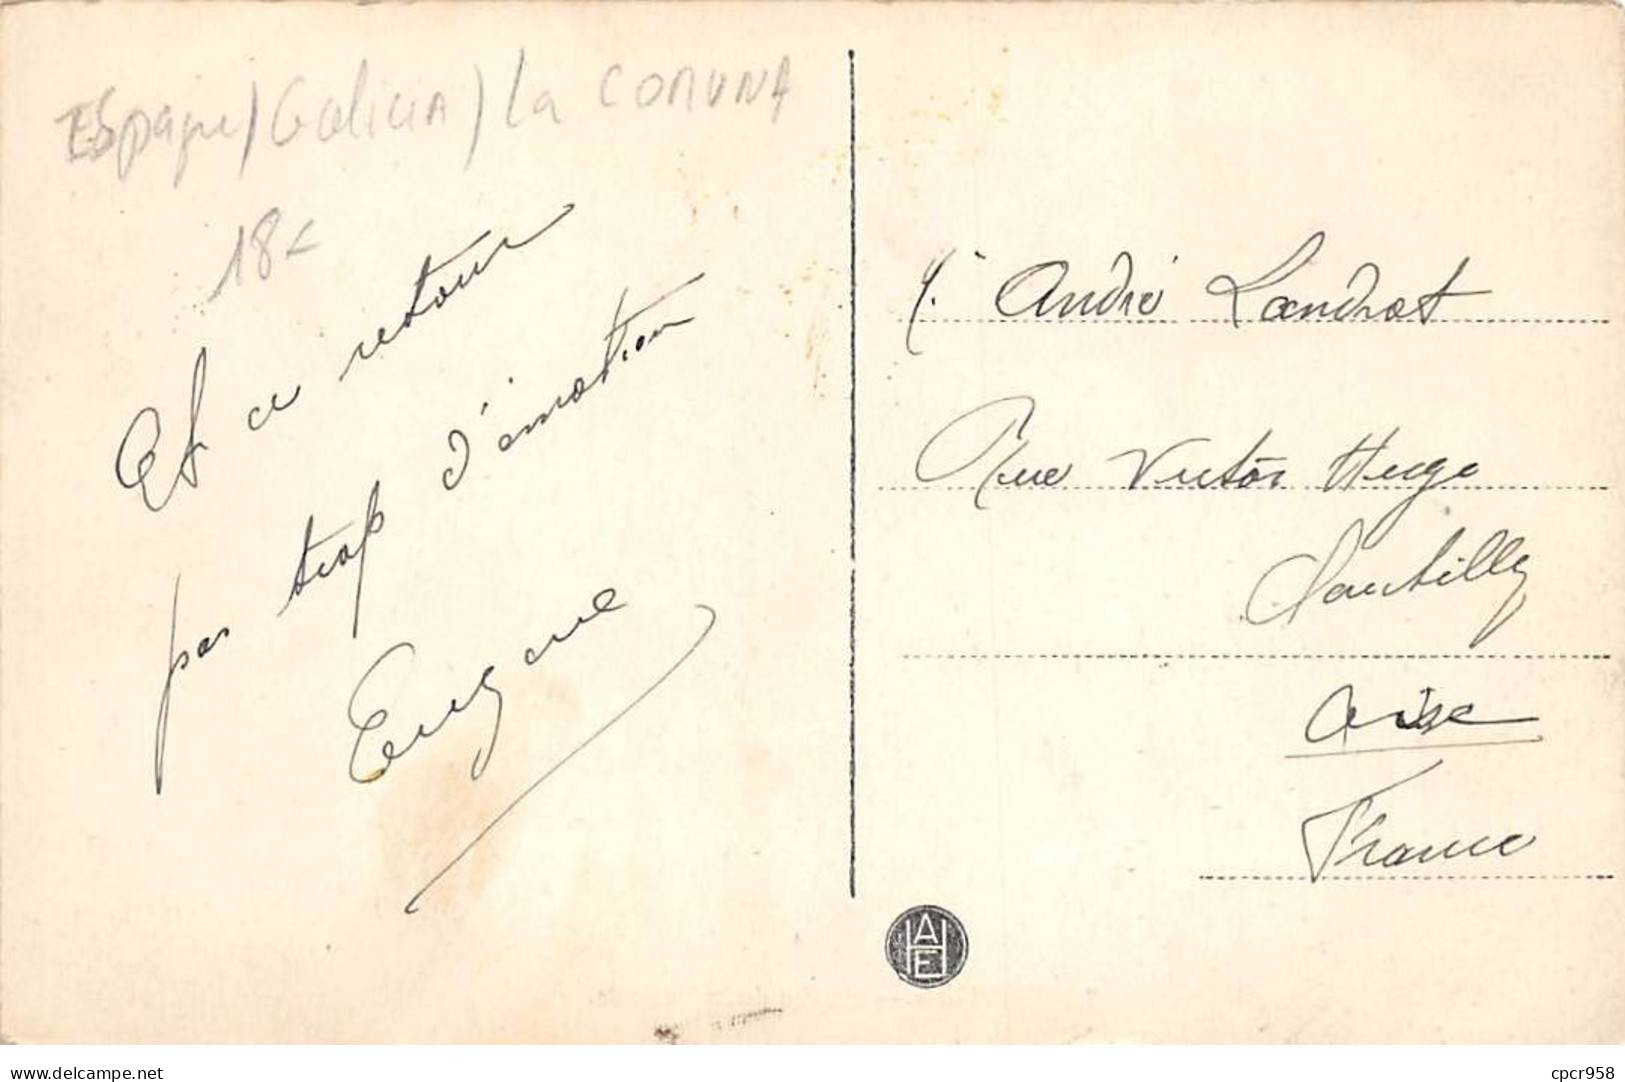 Espagne) Galicia) La CORUNA
18€
Et ce retour
pas trop d'émotion
Eugene
André Landrot
Rue Victor Hugo
Chantilly
Oise
France
HAE
delcampe.net
cpcr958